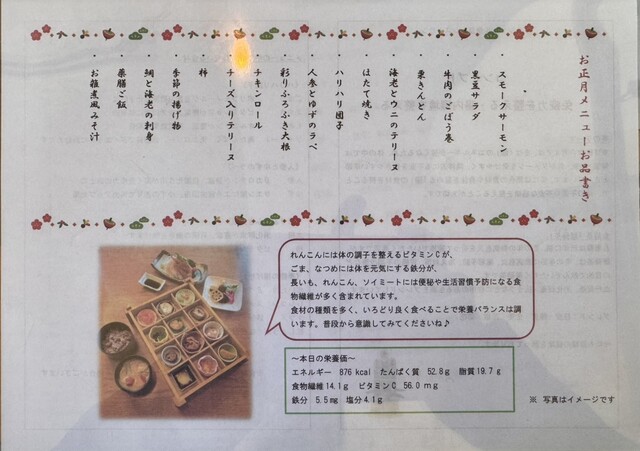 お正月メニューお品書き
・スモークサーモン
・黒豆サラダ
・牛肉のごぼう巻
・栗きんとん
・海老とウニのテリーヌ
・ほたて焼き
・ハリハリ団子
・人参とゆずのラペ
・彩りふろふき大根
・チキンロール
・チーズ入りテリーヌ
・柿
・季節の揚げ物
・鯛と海老の刺身
・薬膳ご飯
・お雑煮風みそ汁
れんこんには体の調子を整えるビタミンCが、
ごま、なつめには体を元気にする鉄分が、
長いも、れんこん、ソイミートには便秘や生活習慣予防になる食
物繊維が多く含まれています。
食材の種類を多く、いろどり良く食べることで栄養バランスは調
います。普段から意識してみてくださいね♪
～本日の栄養価～
エネルギー 876 kcal たんぱく質 52.8g 脂質19.7g
食物繊維14.1g ビタミンC 56.0mg
鉄分 5.5mg 塩分4.1g
※ 写真はイメージです